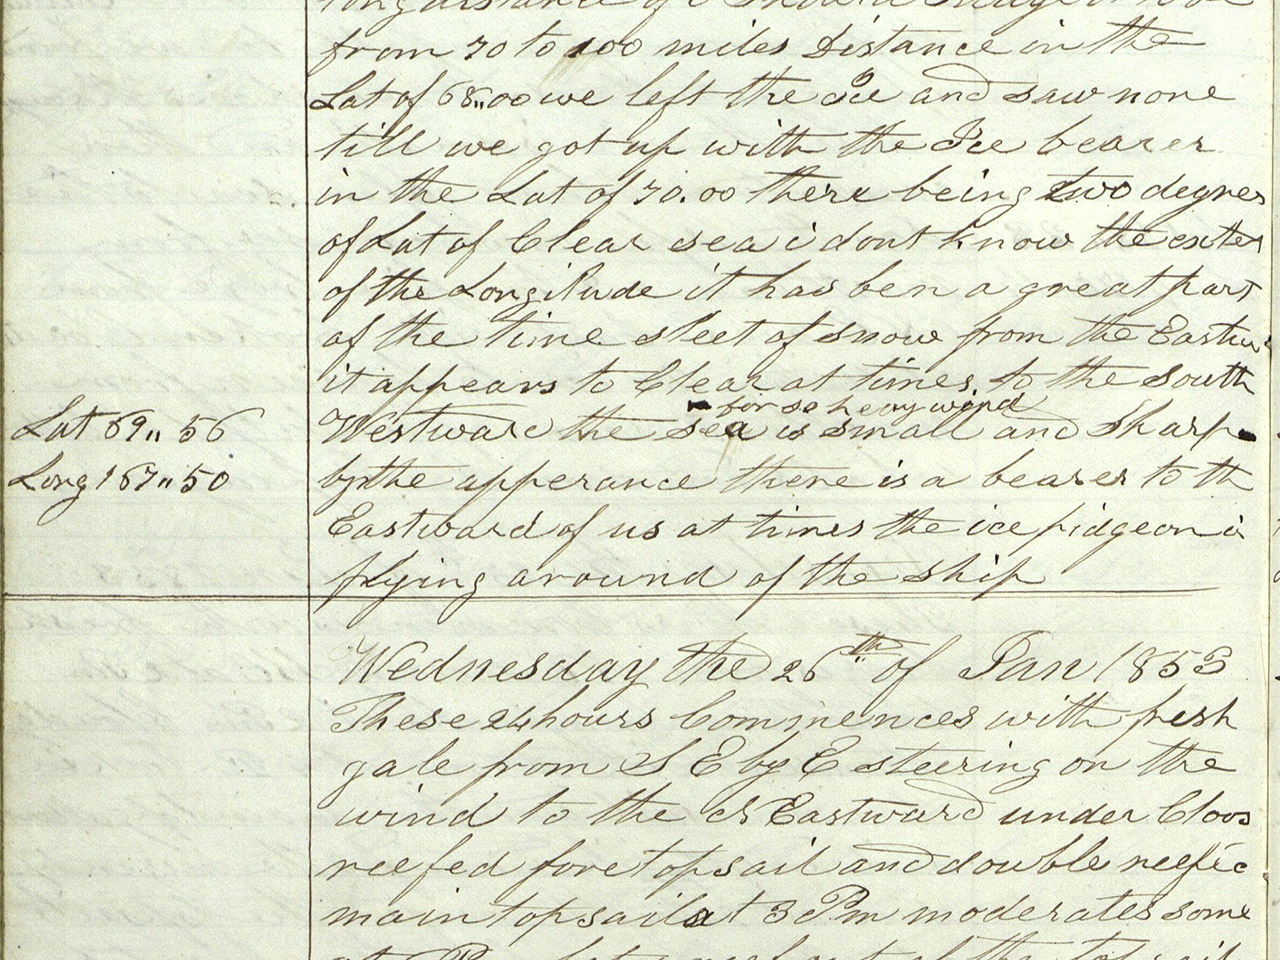 from 70 to 100 miles distance in the
Lat of 68,,00 we left the Ice and saw none
till we got up with the Ice bearer
in the Lat of 70.00 there being two degrees
of Lat of Clear sea i dont know the exten
of the Longitude it has ben a great part
of the time sleet of snow from the Eastw
it appears to Clear at times to the south
for so heavy wind
Westward the sea is small and sharp
Lat 69,, 56
by the apperance there is a bearer to th
Long 167,, 50
Eastward of us at times the ice pidgeon is
flying around of the ship
Wednesday the 26th of Jan 1853
These 24 hours Commences with fresh
gale from S E by E steering on the
wind to the Eastward under Cloos
reefed foretopsail and double reefed
maintopsail at 3 Pm moderates some